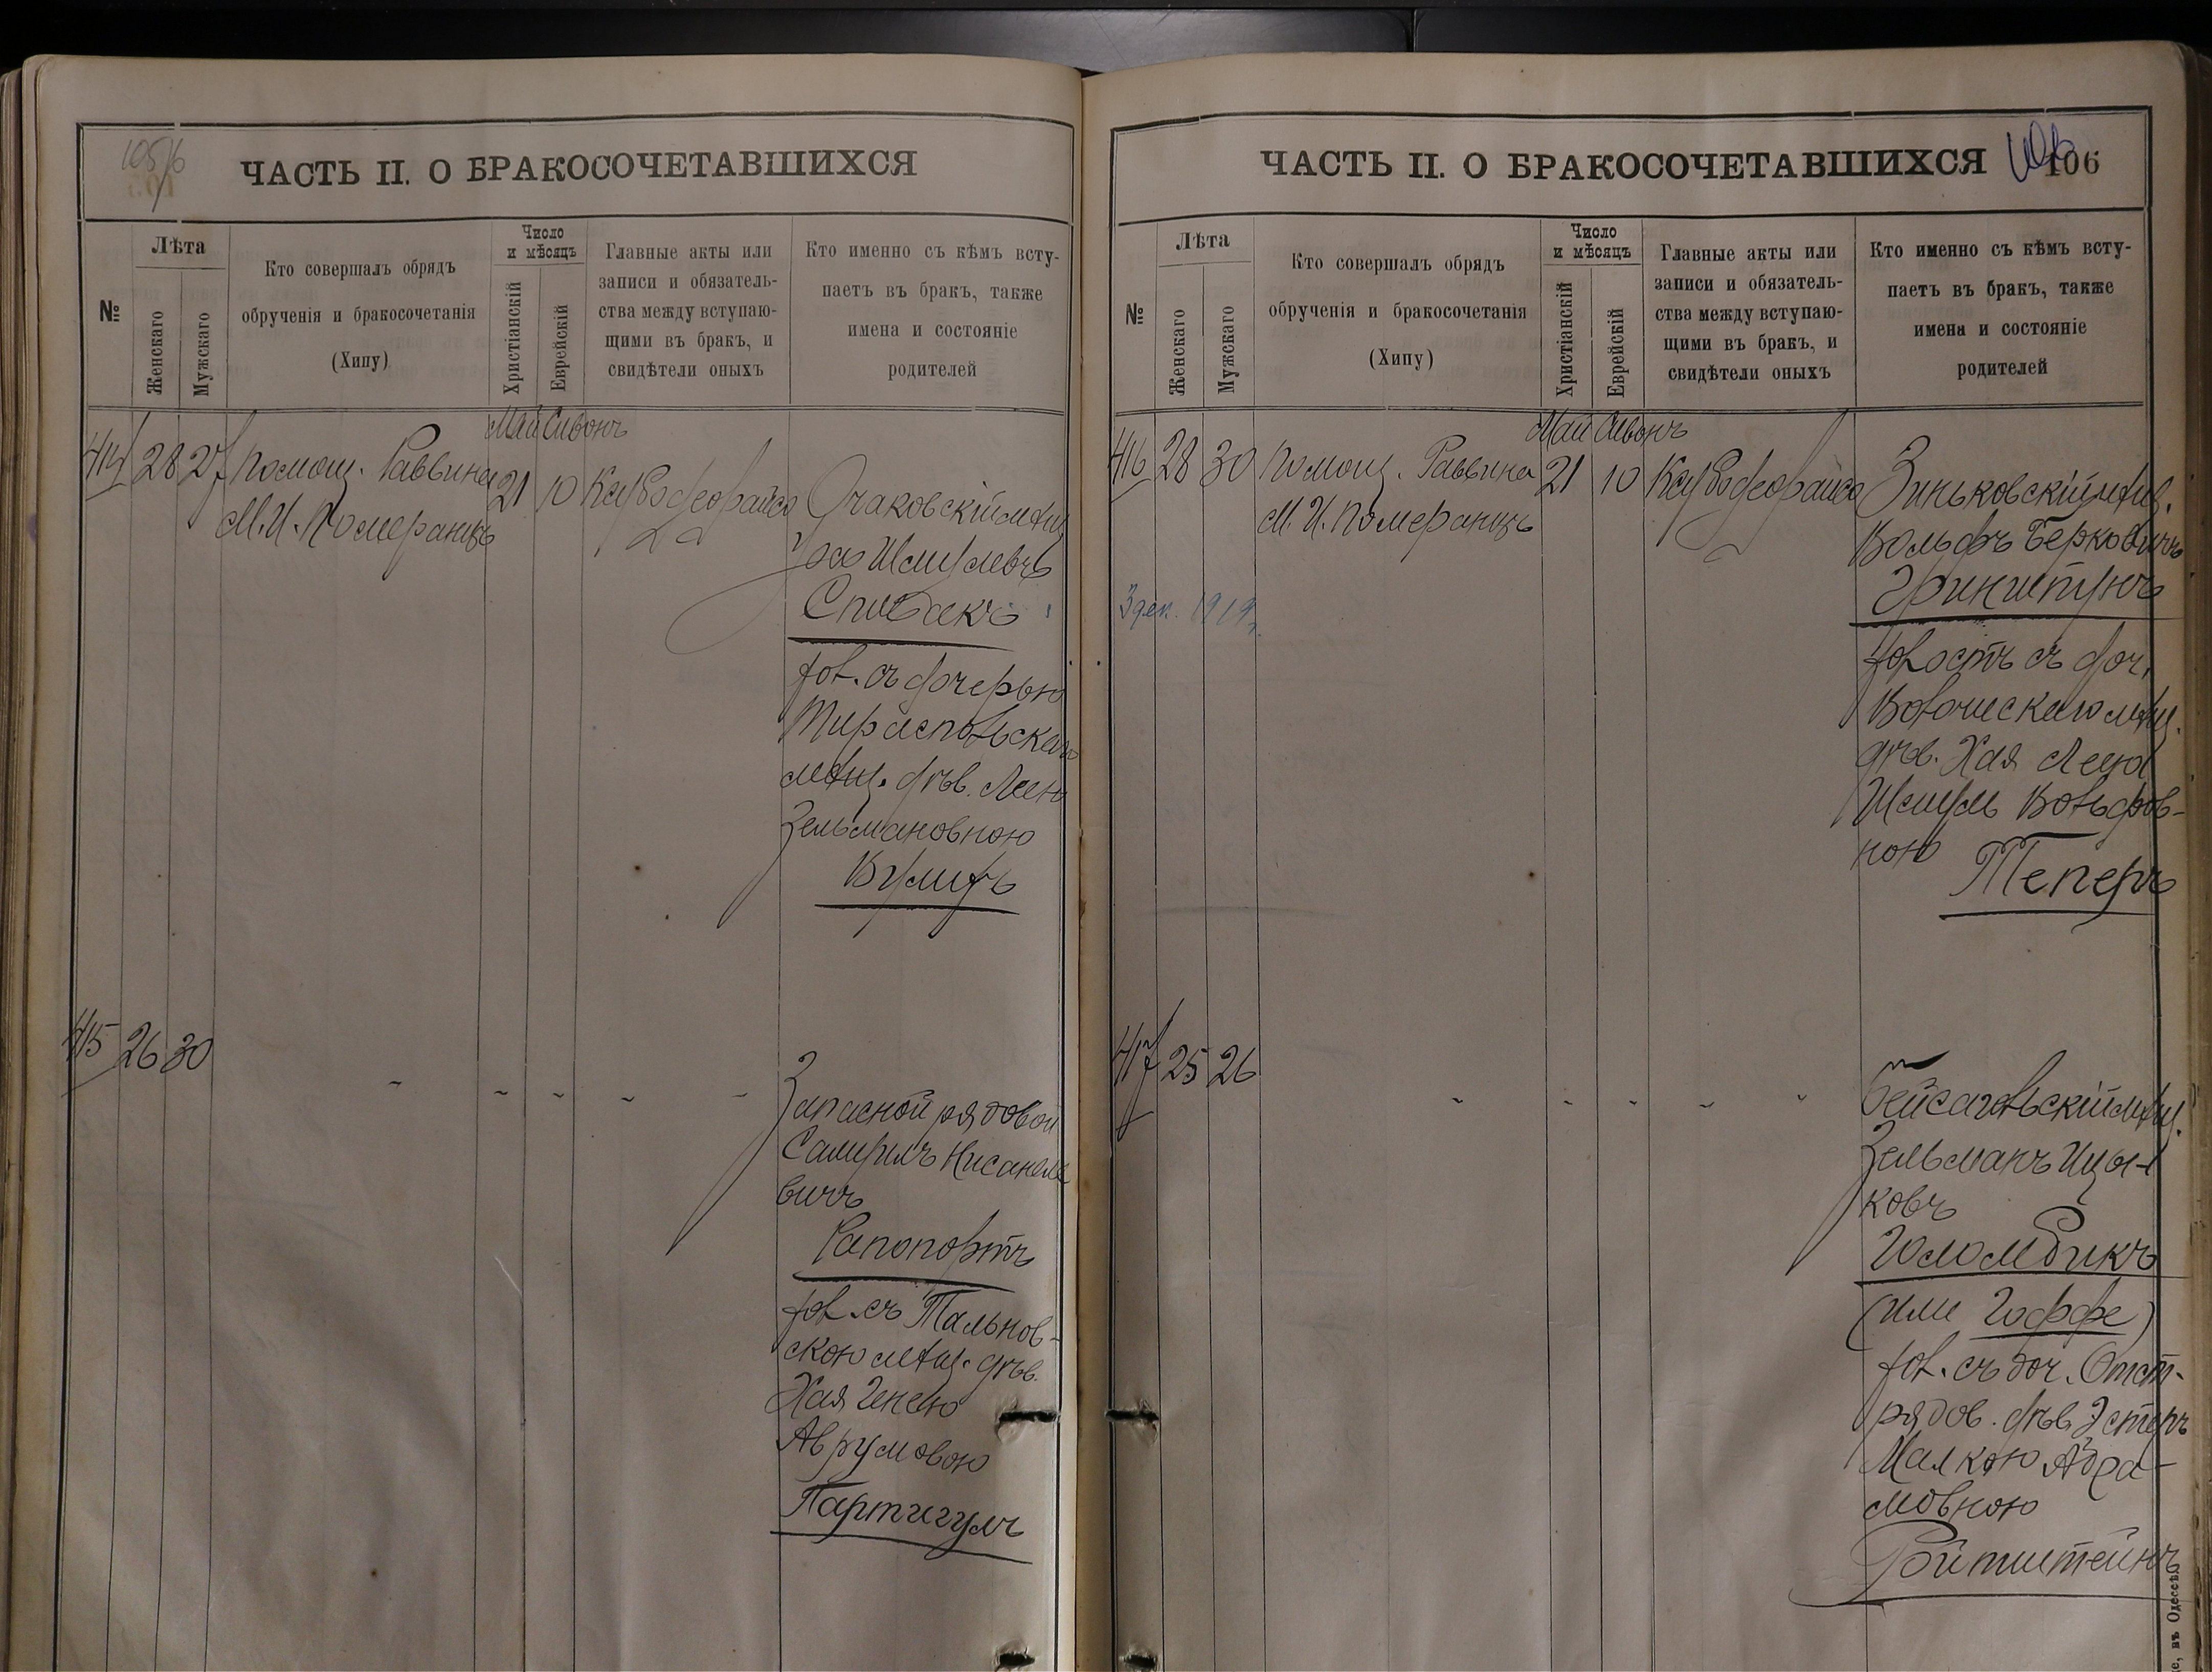 105/6
ЧАСТЬ II. О БРАКОСОЧЕТАВШИХСЯ
№
Лѣта
Женскаго
Мужскаго
Кто совершалъ обрядъ
обрученія и бракосочетанія
(Хипу)
Число
и мѣсяцъ
Христіанскій
Еврейскій
Главные акты или
записи и обязатель-
ства между вступаю-
щими въ бракъ, и
свидѣтели оныхъ
Кто именно съ кѣмъ всту-
паетъ въ бракъ, также
имена и состояніе
родителей
Май Сивонъ
414 28 27 Помощ. Раввина 21 10
М. И. Померанцъ
Очаковскій мѣщ.
Шмулевъ
Спивакъ
хол. съ дочерью
Тираспольскаго
мѣщ. дѣв. Леею
Зельмановною
415 26 30
Запасной рядовой
Самуилъ Нисанеле
вичъ
Рапопортъ
хол. съ Тальнов-
скою мѣщ. дѣв.
Хая Генею
Аврумовою
Партигулъ
ЧАСТЬ II. О БРАКОСОЧЕТАВШИХСЯ
106
№
Лѣта
Женскаго
Мужскаго
Кто совершалъ обрядъ
обрученія и бракосочетанія
(Хипу)
Число
и мѣсяцъ
Христіанскій
Еврейскій
Главные акты или
записи и обязатель-
ства между вступаю-
щими въ бракъ, и
свидѣтели оныхъ
Кто именно съ кѣмъ всту-
паетъ въ бракъ, также
имена и состояніе
родителей
Май Сивонъ
416 28 30 Помощ. Раввина 21 10
М. И. Померанцъ
3 дек. 1919 г.
Зиньковскій мѣщ.
Вольфъ Берковичъ
Гринштунъ
холостъ съ доч.
мѣщ.
дѣв. Хая Лея
Шмуль Вольфов-
ною
Теперъ
417 25 26
Бейсагольскій мѣщ.
Зельманъ Ицы-
ковъ
Голомбикъ
(или Гоффе)
хол. съ доч. Отст.
рядов. дѣв. Эстеръ
Малкою Абра-
мовною
Ройтштейнъ
въ Одессѣ